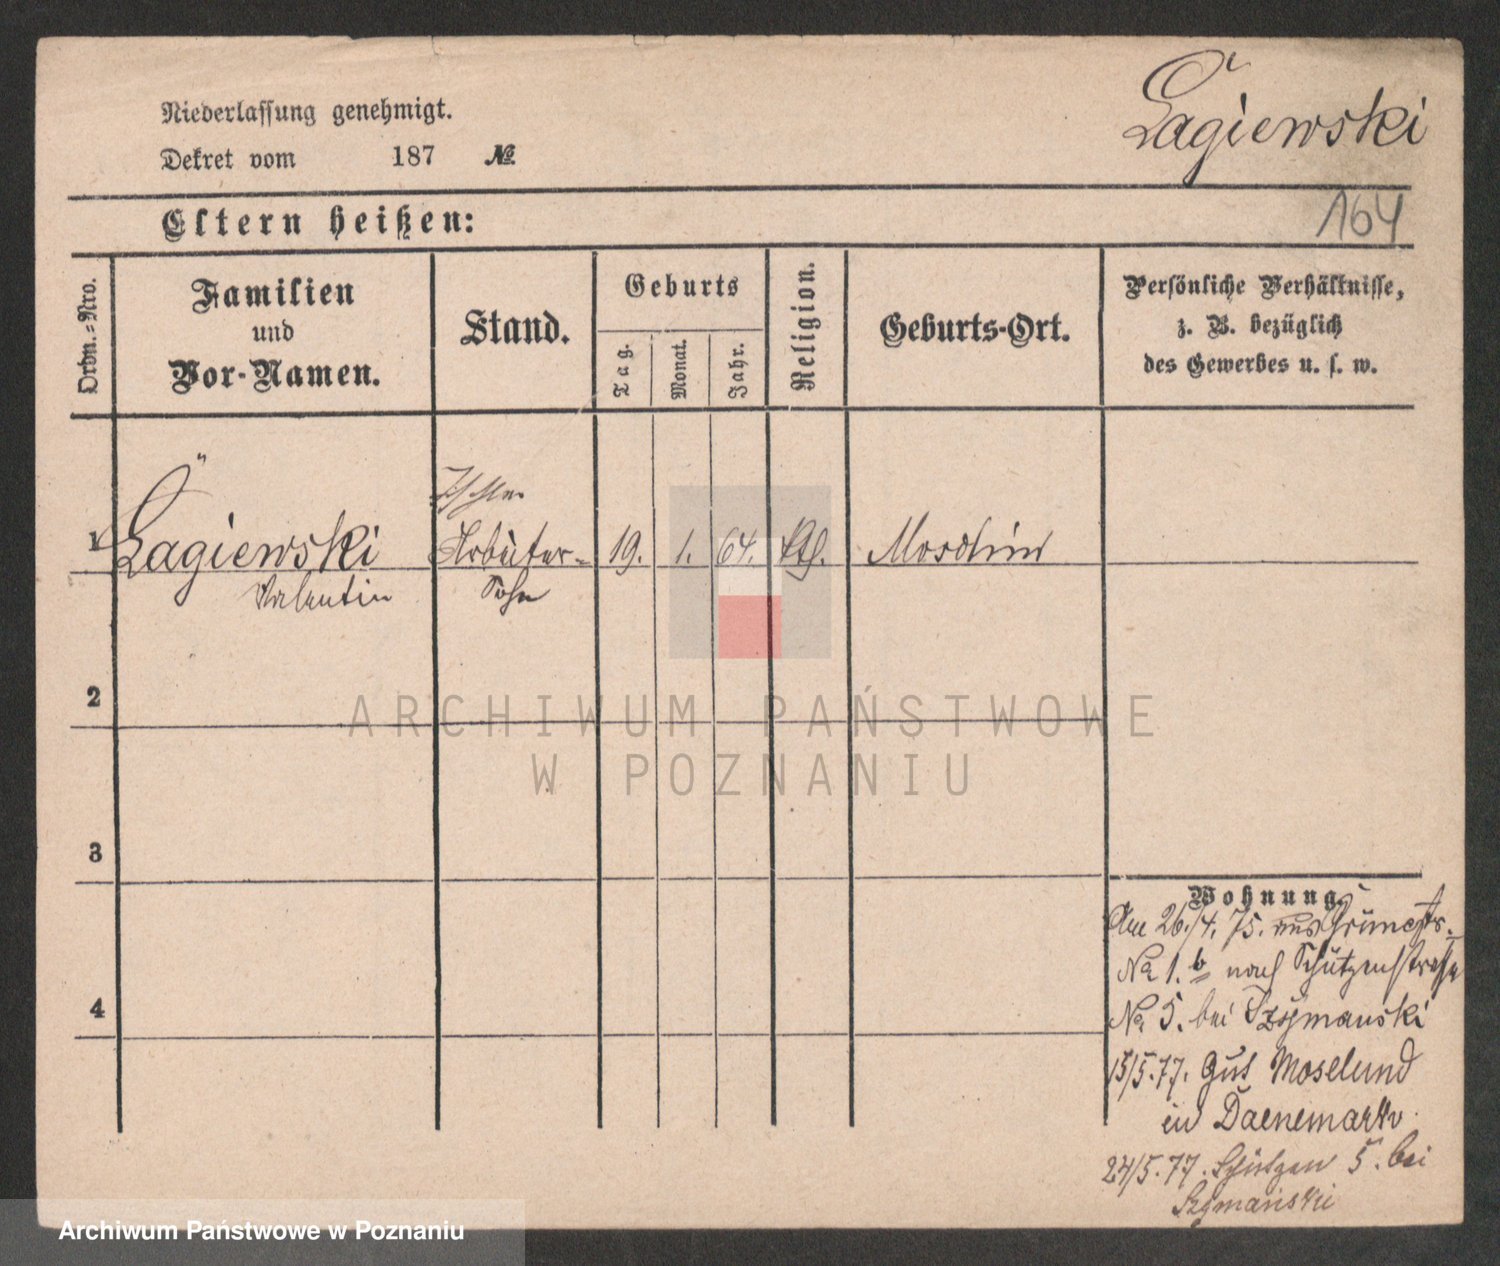 Niederlassung genehmigt.
Dekret vom 187 №
Łagiewski
164
Eltern heißen:
Ordn.-Nro.
Familien
und
Vor-Namen.
Stand.
Geburts
Tag.
Monat.
Jahr.
Religion.
Geburts-Ort.
Persönliche Verhältnisse,
z. B. bezüglich
des Gewerbes u. s. w.
1 Łagiewski Arbeiter- 19. 1. 64. kth. Moschin
Valentin Sohn
2
3
4
Wohnung.
Am 26./4. 75. aus Grünestr.
№ 1.b nach Schützenstraße
№ 5. bei Szymanski
15/5.77. Gut Moselund
in Daenemark
24/5.77. Schützen 5. bei
Szymański
ARCHIWUM PAŃSTWOWE
W POZNANIU
Archiwum Państwowe w Poznaniu